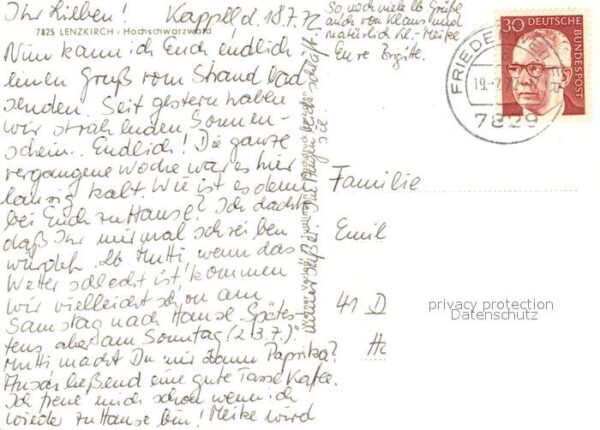 Ihr Lieben! Kappel d. 18.7.72
7825 LENZKIRCH / Hochschwarzwald
Nun kann ich Euch endlich
einen Gruß vom Strandbad
senden. Seit gestern haben
wir strahlenden Sonnen-
schein. Endlich! Die ganze
vergangene Woche war es hier
lausig kalt. Wie ist es denn
bei Euch zu Hause? Ich dachte
daß Ihr mir mal schreiben
würdet. Lb. Mutti, wenn das
Wetter schlecht ist, kommen
wir vielleicht schon am
Samstag nach Hause. Spätes-
tens aber am Sonntag (23.7.).
Mutti machst Du mir dann Paprika?
Anschließend eine gute Tasse Kaffee.
Ich freue mich schon wenn ich
wieder zu Hause bin! Meike wird
immer süßer. Im Augenblick schläft sie.
So, noch viele lb. Grüße
auch von Klaus und
natürlich kl.-Meike
Eure Brigitte.
30
DEUTSCHE
BUNDESPOST
FRIEDENWEILER
7829
Familie
Emil
41 D
privacy protection
Datenschutz